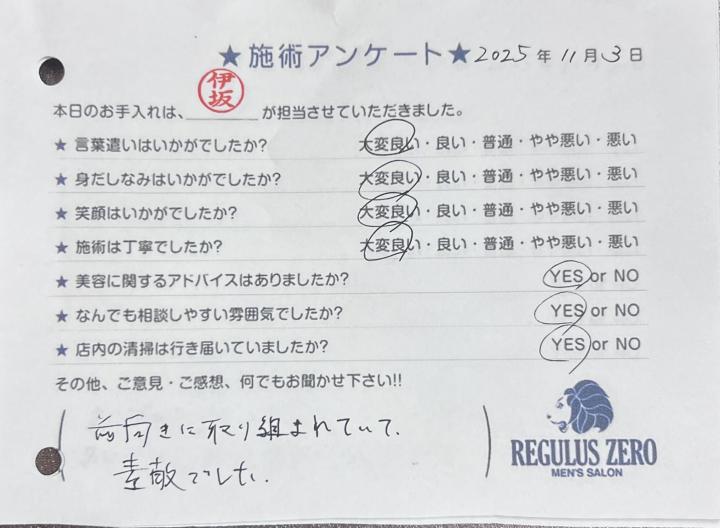 ★施術アンケート★ 2025年11月3日
本日のお手入れは、伊坂が担当させていただきました。
★ 言葉遣いはいかがでしたか? 大変良い・良い・普通・やや悪い・悪い
★ 身だしなみはいかがでしたか? 大変良い・良い・普通・やや悪い・悪い
★ 笑顔はいかがでしたか? 大変良い・良い・普通・やや悪い・悪い
★ 施術は丁寧でしたか? 大変良い・良い・普通・やや悪い・悪い
★ 美容に関するアドバイスはありましたか? YES or NO
★ なんでも相談しやすい雰囲気でしたか? YES or NO
★ 店内の清掃は行き届いていましたか? YES or NO
その他、ご意見・ご感想、何でもお聞かせ下さい!!
前向きに取り組まれていて、
素敵でした。
REGULUS ZERO
MEN'S SALON